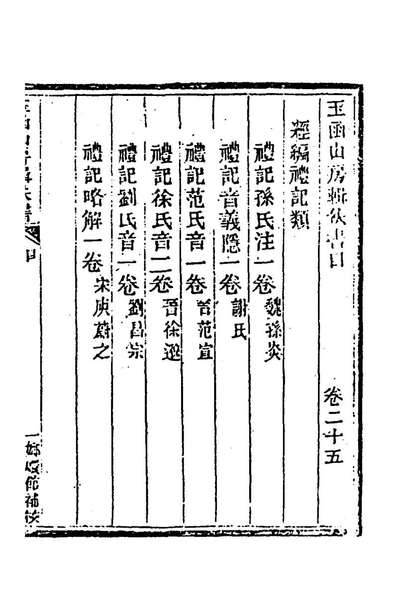 玉函山房輯佚書目 卷二十五
經編禮記類
禮記孫氏注一卷 魏孫炎
禮記音義隱一卷 謝氏
禮記范氏音一卷 晉范宣
禮記徐氏音二卷 晉徐邈
禮記劉氏音一卷 劉昌宗
禮記略解一卷 宋庾蔚之
玉函山房輯佚書 目
一 嫏嬛館補校